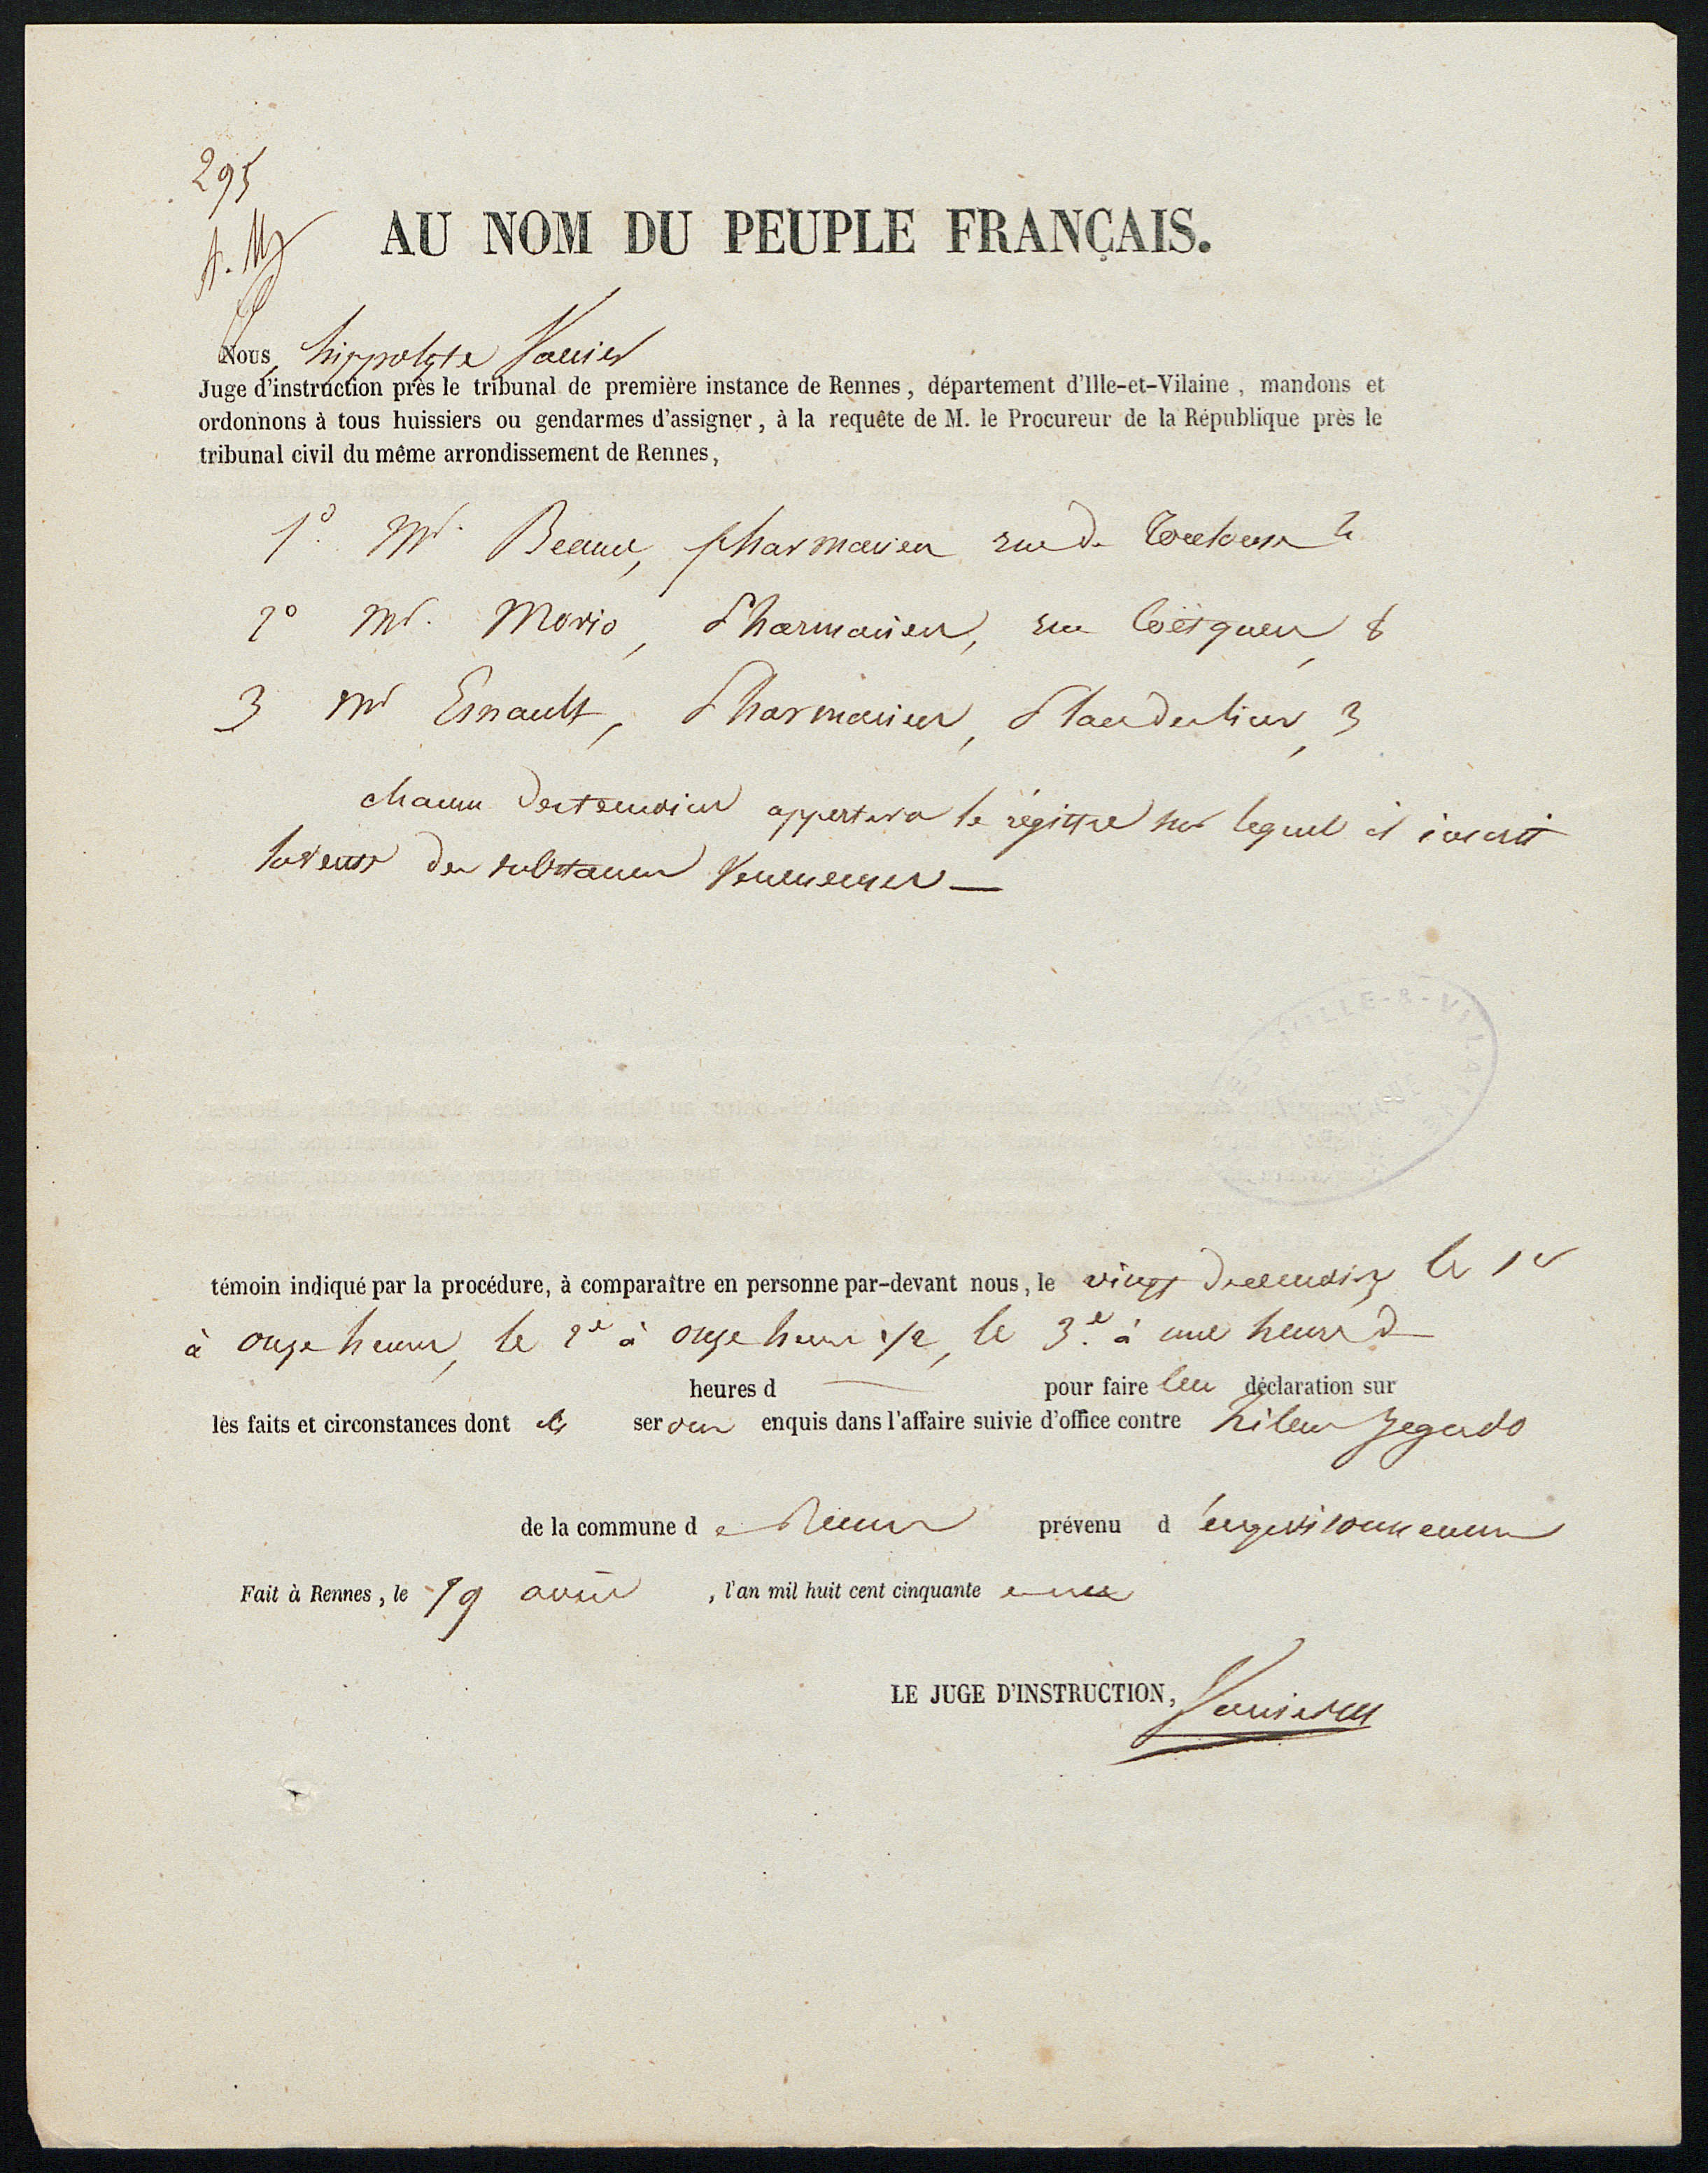 295
AU NOM DU PEUPLE FRANÇAIS.
Nous, hippolyte Vannier
Juge d'instruction près le tribunal de première instance de Rennes, département d'Ille-et-Vilaine, mandons et
ordonnons à tous huissiers ou gendarmes d'assigner, à la requête de M. le Procureur de la République près le
tribunal civil du même arrondissement de Rennes,
1° Mr. pharmacien rue de Toulouse
2° Mr. Morio, Pharmacien, rue Coëtquen, 8
3 Mr Esnault, Pharmacien, Place des lices, 3
chacun des temoins apportera le régistre sur lequel il inscrit
la vente des substances Veneneuses —
ILLE-&-VILAINE
témoin indiqué par la procédure, à comparaître en personne par-devant nous, le vingt deux le 1er
à onze heures, le 2e à onze heures 1/2, le 3e à une heure d
heures d — pour faire leur déclaration sur
les faits et circonstances dont ils seront enquis dans l'affaire suivie d'office contre hélène Jegado
de la commune de Rennes prévenu d'empoisonnement
Fait à Rennes, le 19 , l'an mil huit cent cinquante et un
LE JUGE D'INSTRUCTION, Vannier